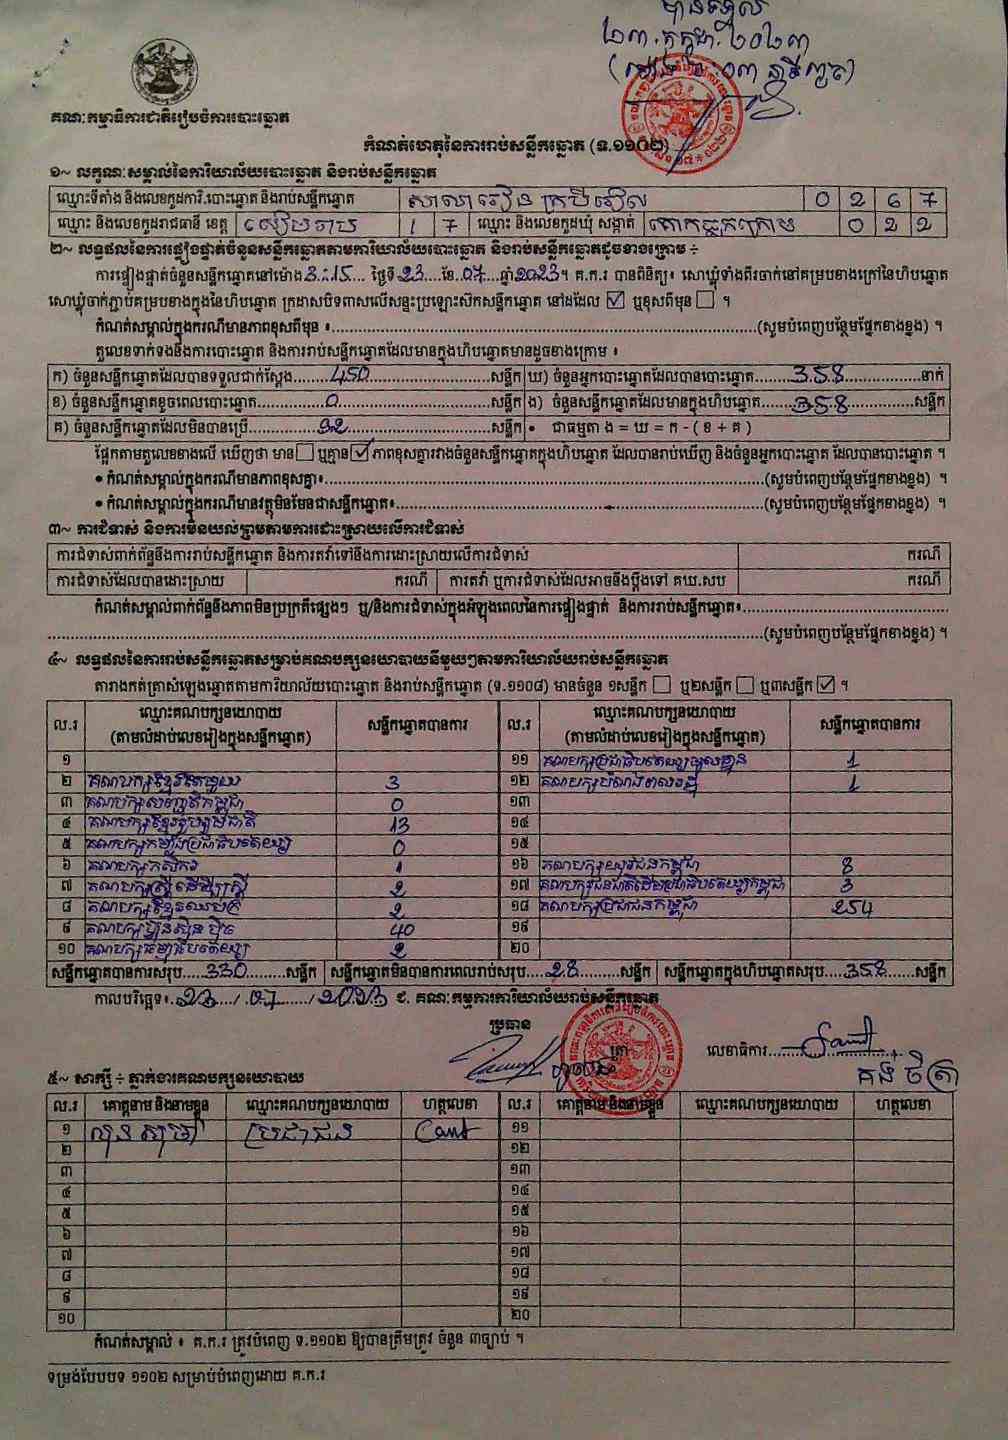 បានស្គាល់
២៣.កក្កដា.២០២៣
គណៈកម្មាធិការជាតិរៀបចំការបោះឆ្នោត
កំណត់ហេតុនៃការរាប់សន្លឹកឆ្នោត (ទ.១១០២)
១~ លក្ខណៈសម្គាល់នៃការិយាល័យបោះឆ្នោត និងរាប់សន្លឹកឆ្នោត
ឈ្មោះទីតាំង និងលេខកូដការិ.បោះឆ្នោត និងរាប់សន្លឹកឆ្នោត សាលារៀន ក្របីរៀល 0 2 6 7
ឈ្មោះ និងលេខកូដរាជធានី ខេត្ត សៀមរាប 1 7 ឈ្មោះ និងលេខកូដឃុំ សង្កាត់ គោកធ្លកក្រោម 0 2 2
២~ លទ្ធផលនៃការផ្ទៀងផ្ទាត់ចំនួនសន្លឹកឆ្នោតតាមការិយាល័យបោះឆ្នោត និងរាប់សន្លឹកឆ្នោតដូចខាងក្រោម ÷
ការផ្ទៀងផ្ទាត់ចំនួនសន្លឹកឆ្នោតនៅម៉ោង 3:15 ថ្ងៃទី 23 ខែ 07 ឆ្នាំ 2023។ គ.ក.រ បានពិនិត្យ៖ សោឃ្លុំទាំងពីរចាក់នៅគម្របខាងក្រៅនៃហិបឆ្នោត
សោឃ្លុំចាក់ភ្ជាប់គម្របខាងក្នុងនៃហិបឆ្នោត ក្រដាសបិទពាសលើសន្ទះប្រឡោះសិកសន្លឹកឆ្នោត នៅដដែល ☑ ឬខុសពីមុន ☐ ។
កំណត់សម្គាល់ក្នុងករណីមានភាពខុសពីមុន ៖ (សូមបំពេញបន្ថែមផ្នែកខាងខ្នង) ។
តួលេខទាក់ទងនឹងការបោះឆ្នោត និងការរាប់សន្លឹកឆ្នោតដែលមានក្នុងហិបឆ្នោតមានដូចខាងក្រោម ៖
ក) ចំនួនសន្លឹកឆ្នោតដែលបានទទួលជាក់ស្តែង 450 សន្លឹក ឃ) ចំនួនអ្នកបោះឆ្នោតដែលបានបោះឆ្នោត 358 នាក់
ខ) ចំនួនសន្លឹកឆ្នោតខូចពេលបោះឆ្នោត 0 សន្លឹក ង) ចំនួនសន្លឹកឆ្នោតដែលមានក្នុងហិបឆ្នោត 358 សន្លឹក
គ) ចំនួនសន្លឹកឆ្នោតដែលមិនបានប្រើ 92 សន្លឹក • ជាធម្មតា ង = ឃ = ក - ( ខ + គ )
ផ្អែកតាមតួលេខខាងលើ ឃើញថា មាន ☐ ឬគ្មាន ☑ ភាពខុសគ្នារវាងចំនួនសន្លឹកឆ្នោតក្នុងហិបឆ្នោត ដែលបានរាប់ឃើញ និងចំនួនអ្នកបោះឆ្នោត ដែលបានបោះឆ្នោត ។
• កំណត់សម្គាល់ក្នុងករណីមានភាពខុសគ្នា៖ (សូមបំពេញបន្ថែមផ្នែកខាងខ្នង) ។
• កំណត់សម្គាល់ក្នុងករណីមានវត្ថុមិនមែនជាសន្លឹកឆ្នោត៖ (សូមបំពេញបន្ថែមផ្នែកខាងខ្នង) ។
៣~ ការជំទាស់ និងការមិនយល់ព្រមតាមការដោះស្រាយលើការជំទាស់
ការជំទាស់ពាក់ព័ន្ធនឹងការរាប់សន្លឹកឆ្នោត និងការតវ៉ាទៅនឹងការដោះស្រាយលើការជំទាស់ ករណី
ការជំទាស់ដែលបានដោះស្រាយ ករណី ការតវ៉ា ឬការជំទាស់ដែលអាចនឹងប្តឹងទៅ គឃ.សប ករណី
កំណត់សម្គាល់ពាក់ព័ន្ធនឹងភាពមិនប្រក្រតីផ្សេងៗ ឬ/និងការជំទាស់ក្នុងអំឡុងពេលនៃការផ្ទៀងផ្ទាត់ និងការរាប់សន្លឹកឆ្នោត៖
(សូមបំពេញបន្ថែមផ្នែកខាងខ្នង) ។
៤~ លទ្ធផលនៃការរាប់សន្លឹកឆ្នោតសម្រាប់គណបក្សនយោបាយនីមួយៗតាមការិយាល័យរាប់សន្លឹកឆ្នោត
តារាងកត់ត្រាសំឡេងឆ្នោតតាមការិយាល័យបោះឆ្នោត និងរាប់សន្លឹកឆ្នោត (ទ.១១០៨) មានចំនួន ១សន្លឹក ☐ ឬ២សន្លឹក ☐ ឬ៣សន្លឹក ☑ ។
ល.រ ឈ្មោះគណបក្សនយោបាយ (តាមលំដាប់លេខរៀងក្នុងសន្លឹកឆ្នោត) សន្លឹកឆ្នោតបានការ ល.រ ឈ្មោះគណបក្សនយោបាយ (តាមលំដាប់លេខរៀងក្នុងសន្លឹកឆ្នោត) សន្លឹកឆ្នោតបានការ
១ ១១ គណបក្សប្រជាធិបតេយ្យមូលដ្ឋាន 1
២ គណបក្សខ្មែរតែមួយ 3 ១២ គណបក្សបំណងពលរដ្ឋ 1
៣ គណបក្សសញ្ជាតិកម្ពុជា 0 ១៣
៤ គណបក្សខ្មែររួបរួមជាតិ 13 ១៤
៥ គណបក្សកម្លាំងប្រជាធិបតេយ្យ 0 ១៥
៦ គណបក្សកសិករ 1 ១៦ គណបក្សយុវជនកម្ពុជា 8
៧ គណបក្សស្ត្រីដើម្បីស្ត្រី 2 ១៧ គណបក្សជនជាតិដើមប្រជាធិបតេយ្យកម្ពុជា 3
៨ គណបក្សខ្មែរឈប់ក្រ 2 ១៨ គណបក្សប្រជាជនកម្ពុជា 254
៩ គណបក្សហ្វ៊ុនស៊ិនប៉ិច 40 ១៩
១០ គណបក្សធម្មាធិបតេយ្យ 2 ២០
សន្លឹកឆ្នោតបានការសរុប 330 សន្លឹក សន្លឹកឆ្នោតមិនបានការពេលរាប់សរុប 28 សន្លឹក សន្លឹកឆ្នោតក្នុងហិបឆ្នោតសរុប 358 សន្លឹក
កាលបរិច្ឆេទ៖ 23/07/2023 ជ. គណៈកម្មការការិយាល័យរាប់សន្លឹកឆ្នោត
ប្រធាន
ត្រា លេខាធិការ
គង់ ចិត្រា
៥~ សាក្សី ÷ ភ្នាក់ងារគណបក្សនយោបាយ
ល.រ គោត្តនាម និងនាមខ្លួន ឈ្មោះគណបក្សនយោបាយ ហត្ថលេខា ល.រ គោត្តនាម និងនាមខ្លួន ឈ្មោះគណបក្សនយោបាយ ហត្ថលេខា
១ ប្រជាជន ១១
២ ១២
៣ ១៣
៤ ១៤
៥ ១៥
៦ ១៦
៧ ១៧
៨ ១៨
៩ ១៩
១០ ២០
កំណត់សម្គាល់ ៖ គ.ក.រ ត្រូវបំពេញ ទ.១១០២ ឱ្យបានត្រឹមត្រូវ ចំនួន ៣ច្បាប់ ។
ទម្រង់បែបបទ ១១០២ សម្រាប់បំពេញដោយ គ.ក.រ